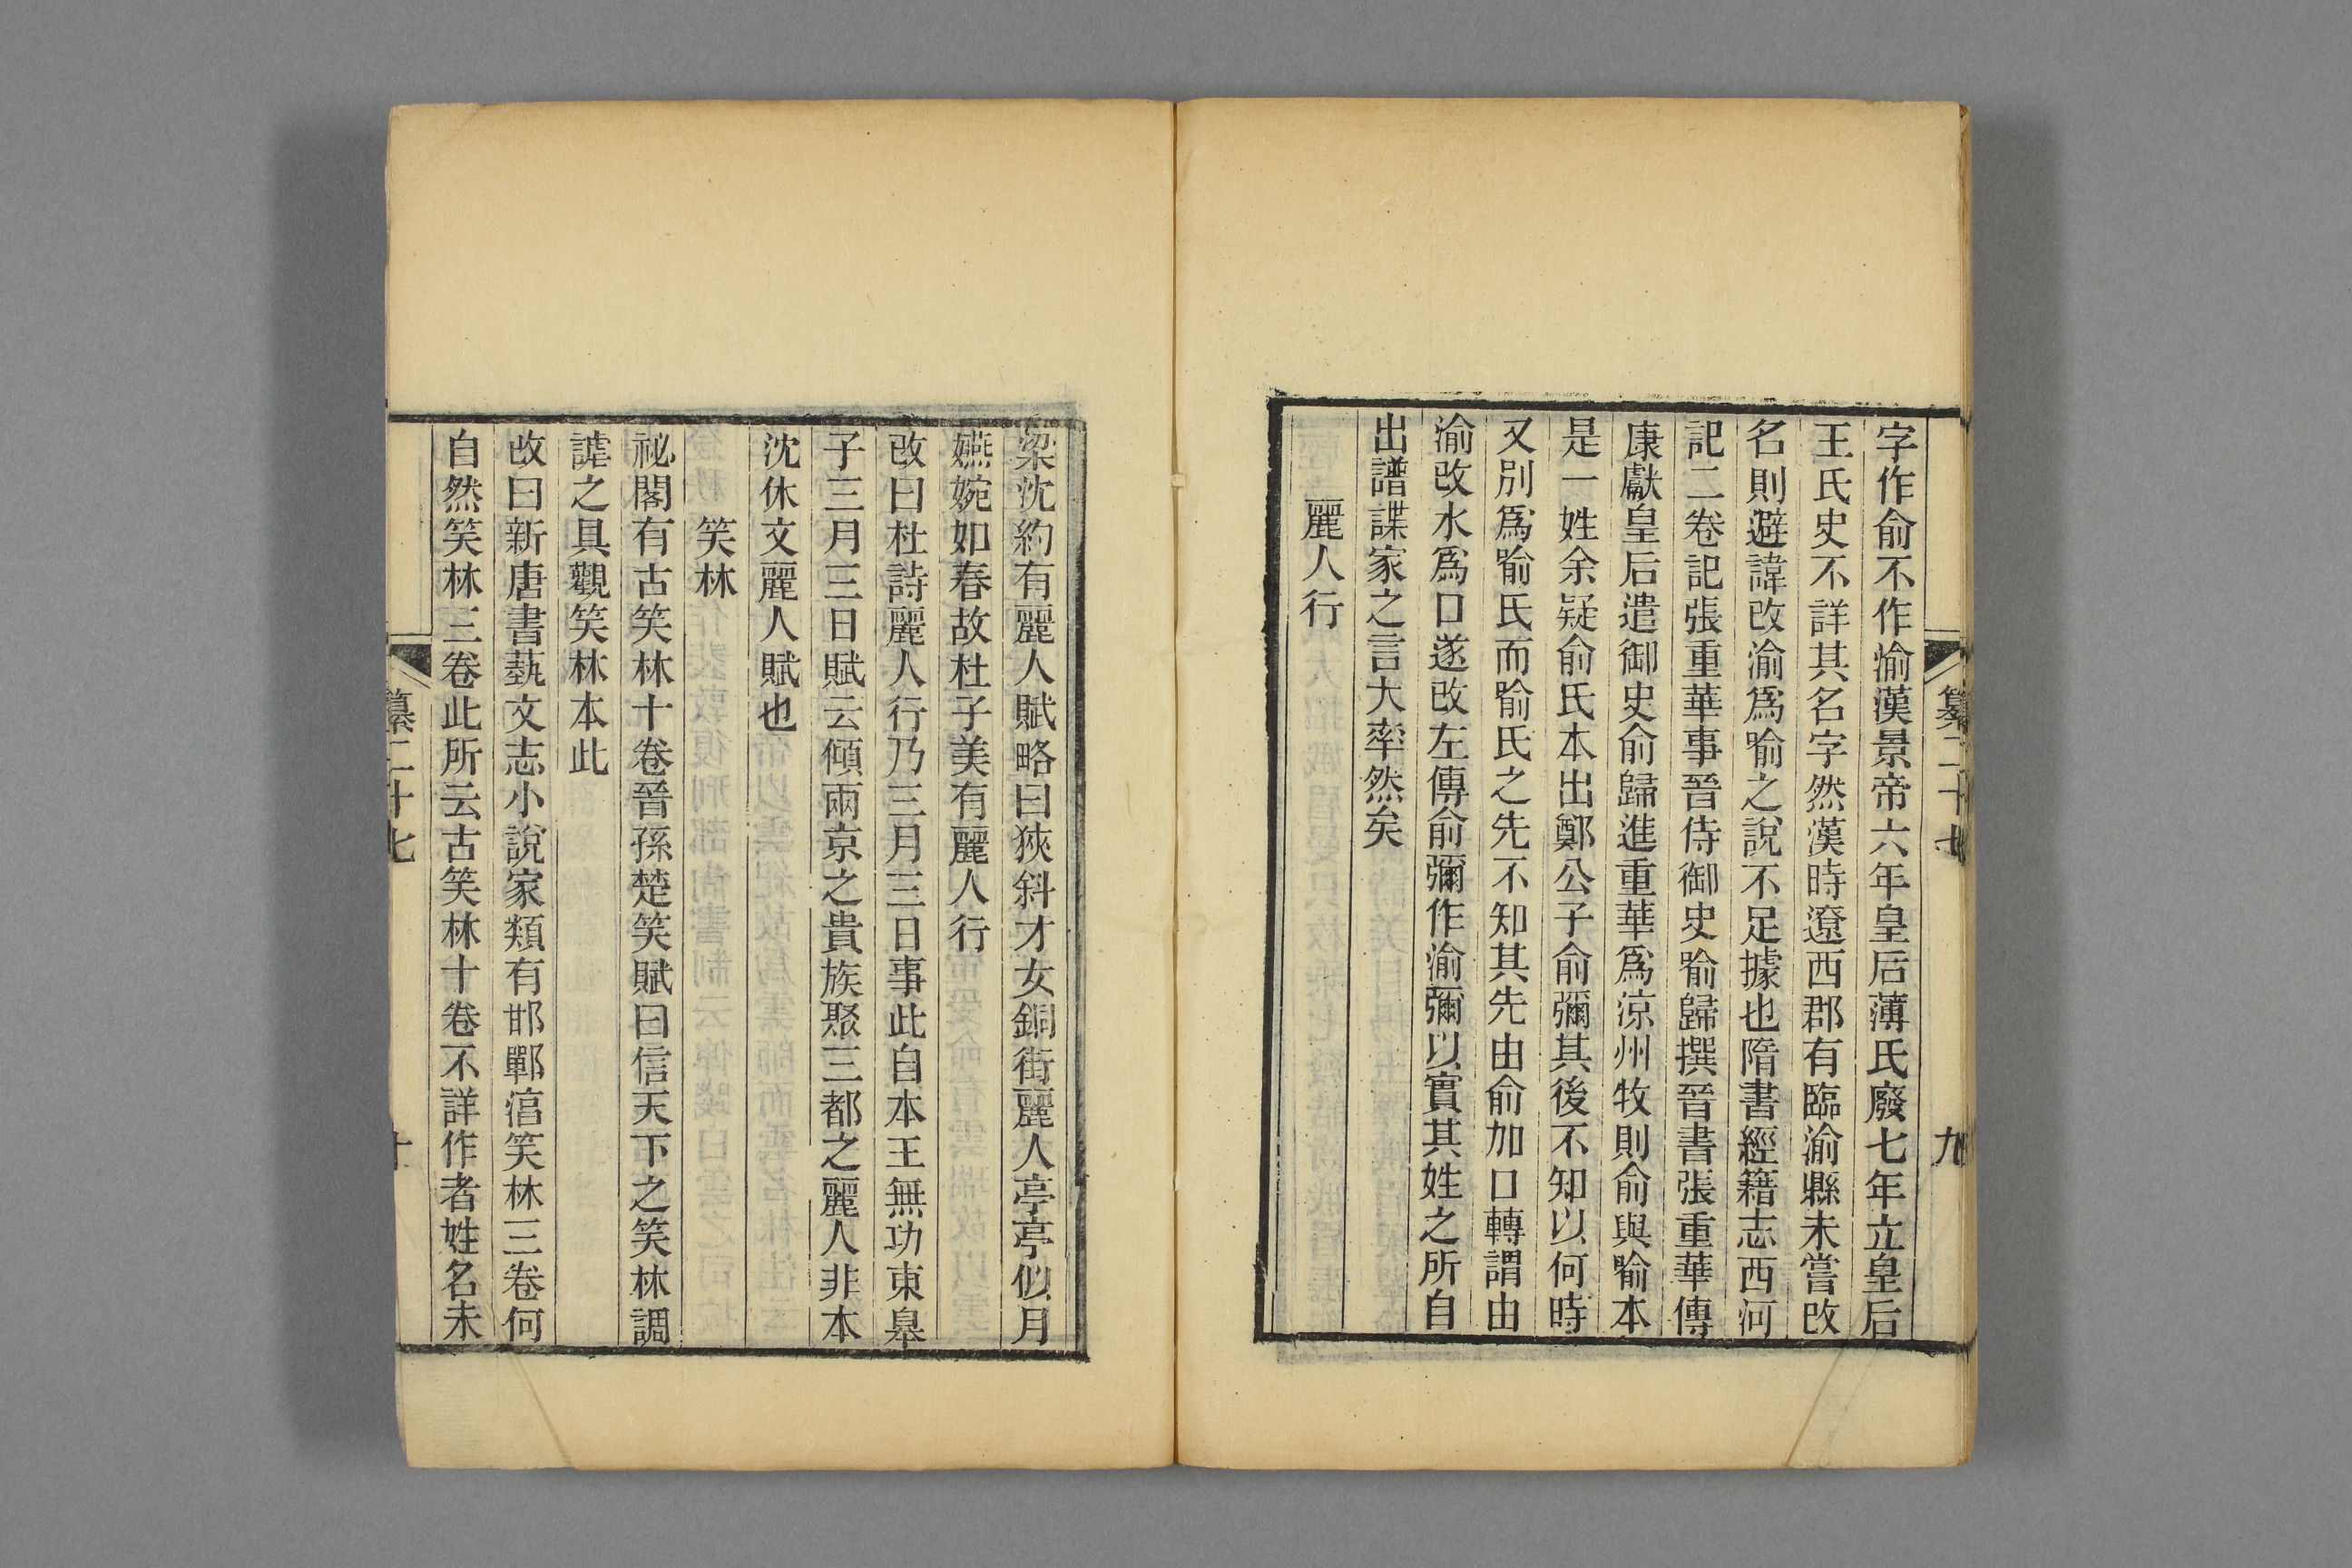 字作俞不作渝漢景帝六年皇后薄氏廢七年立皇后
王氏史不詳其名字然漢時遼西郡有臨渝縣未嘗改
名則避諱改渝爲喻之說不足據也隋書經籍志西河
記二卷記張重華事晉侍御史喻歸撰晉書張重華傳
康獻皇后遣御史俞歸進重華爲涼州牧則俞與喻本
是一姓余疑俞氏本出鄭公子俞彌其後不知以何時
又別爲喻氏而喻氏之先不知其先由俞加口轉謂由
渝改水爲口遂改左傳俞彌作渝彌以實其姓之所自
出譜諜家之言大率然矣
麗人行
纂二十七
九
梁沈約有麗人賦略曰狹斜才女銅街麗人亭亭似月
嬿婉如春故杜子美有麗人行
改曰杜詩麗人行乃三月三日事此自本王無功東皋
子三月三日賦云傾兩京之貴族聚三都之麗人非本
沈休文麗人賦也
笑林
祕閣有古笑林十卷晉孫楚笑賦曰信天下之笑林調
謔之具觀笑林本此
改曰新唐書藝文志小說家類有邯鄲湻笑林三卷何
自然笑林三卷此所云古笑林十卷不詳作者姓名未
纂二十七
十